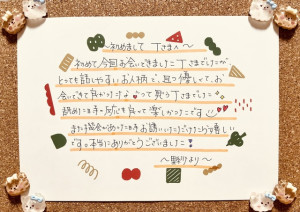 ～初めまして Tさまへ～
初めて今回お会いできましたTさまでしたが、
とっても話しやすいお人柄で、且つ優しくて、お
会いできて良かったな♥って思うTさまでした
舐めた時の反応も良くって楽しかったです
また機会があった時お誘いいただけたら嬉しい
です。本当にありがとうございました
～ より～